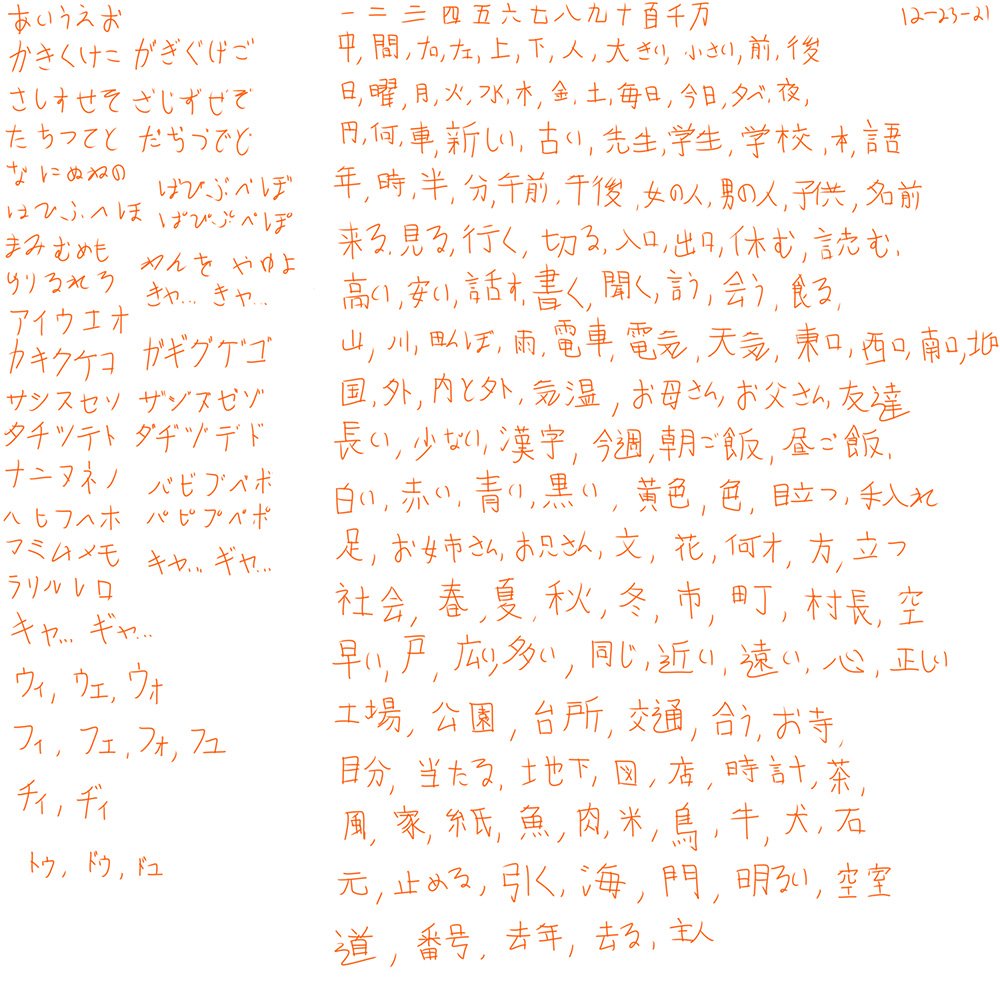 あいうえお
かきくけこ がぎぐげご
さしすせそ ざじずぜぞ
たちつてと だぢづでど
なにぬねの
はひふへほ
ばびぶべぼ
ぱぴぷぺぽ
まみむめも
らりるれろ
わんを やゆよ
きゃ... ぎゃ...
アイウエオ
カキクケコ ガギグゲゴ
サシスセソ ザジズゼゾ
タチツテト ダヂヅデド
ナニヌネノ
ハヒフヘホ
バビブベボ
パピプペポ
マミムメモ
ラリルレロ
キャ... ギャ...
キャ... ギャ...
ウィ, ウェ, ウォ
フィ, フェ, フォ, フュ
チィ, ヂィ
トゥ, ドゥ, ドュ
一二三四五六七八九十百千万
12-23-21
中, 間, 右, 左, 上, 下, 人, 大きい, 小さい, 前, 後
日, 曜, 月, 火, 水, 木, 金, 土, 毎日, 今日, 夕べ, 夜,
円, 何, 車, 新しい, 古い, 先生, 学生, 学校, 本, 語
年, 時, 半, 分, 午前, 午後, 女の人, 男の人, 子供, 名前
来る, 見る, 行く, 切る, 入口, 出口, 休む, 読む,
高い, 安い, 話す, 書く, 聞く, 言う, 会う, 食る,
山, 川, 田んぼ, 雨, 電車, 電気, 天気, 東口, 西口, 南口, 北
国, 外, 内と外, 気温, お母さん, お父さん, 友達
長い, 少ない, 漢字, 今週, 朝ご飯, 昼ご飯,
白い, 赤い, 青い, 黒い, 黄色, 色, 目立つ, 手入れ
足, お姉さん, お兄さん, 文, 花, 何才, 方, 立つ
社会, 春, 夏, 秋, 冬, 市, 町, 村長, 空
早い, 戸, 広い, 多い, 同じ, 近い, 遠い, 心, 正しい
工場, 公園, 台所, 交通, 合う, お寺,
自分, 当たる, 土地下, 図, 店, 時計, 茶,
風, 家, 紙, 魚, 肉, 米, 鳥, 牛, 犬, 石
元, 止める, 引く, 海, 門, 明るい, 空室
道, 番号, 去年, 去る, 主人